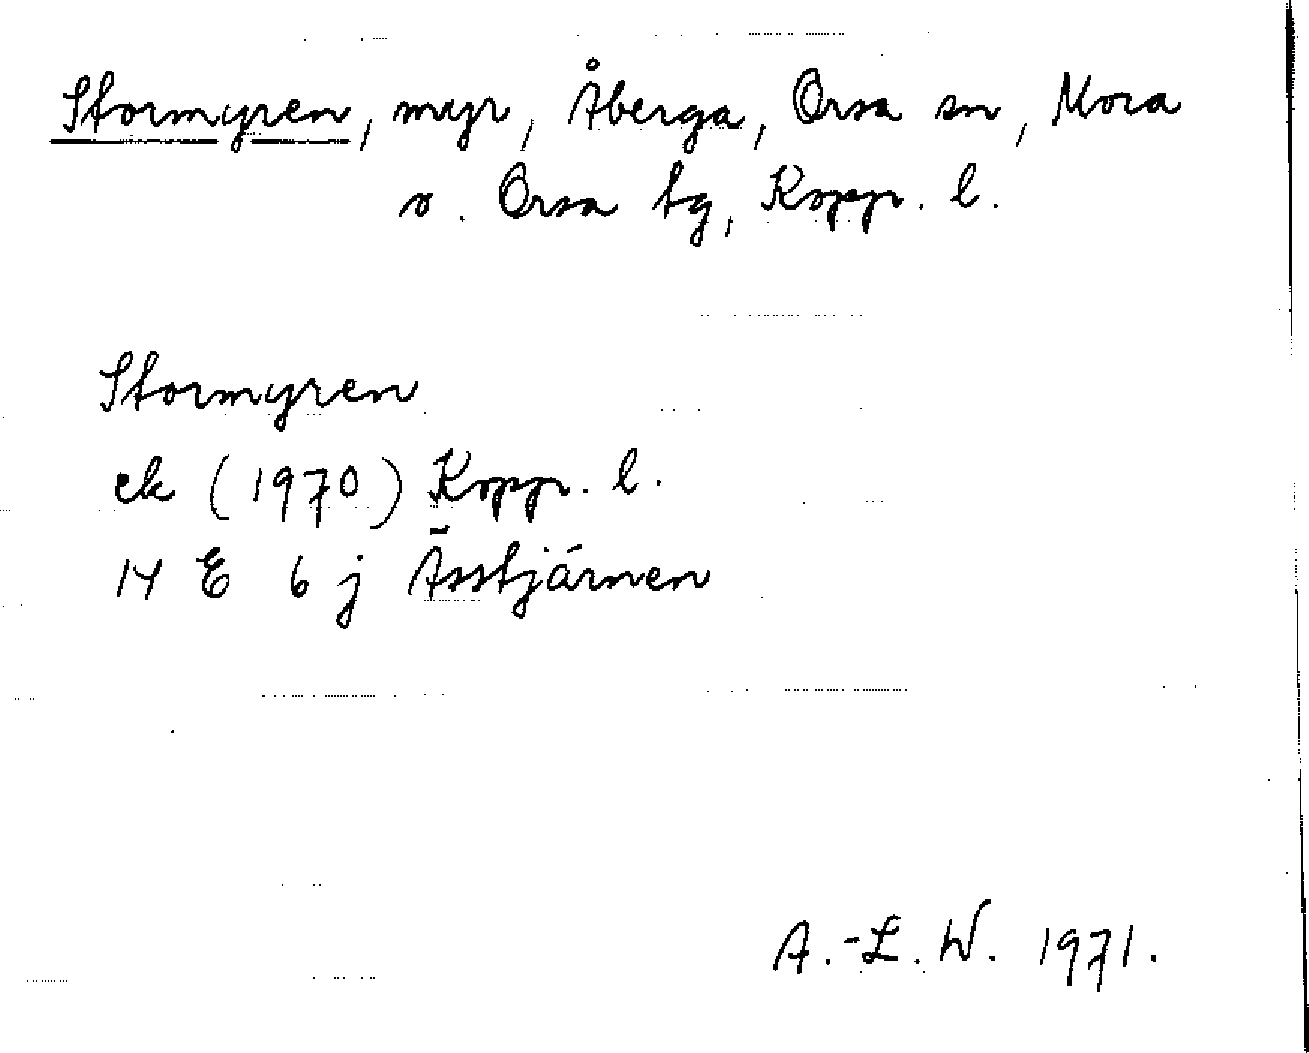 Stormyren, myr, Åberga, Orsa sn, Mora
o. Orsa tg, Kopp. l.
Stormyren
ek (1970) Kopp. l.
14 E 6 j Ässtjärnen
A.-L. W. 1971.